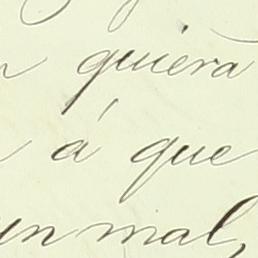 quiera
á que
un mal,